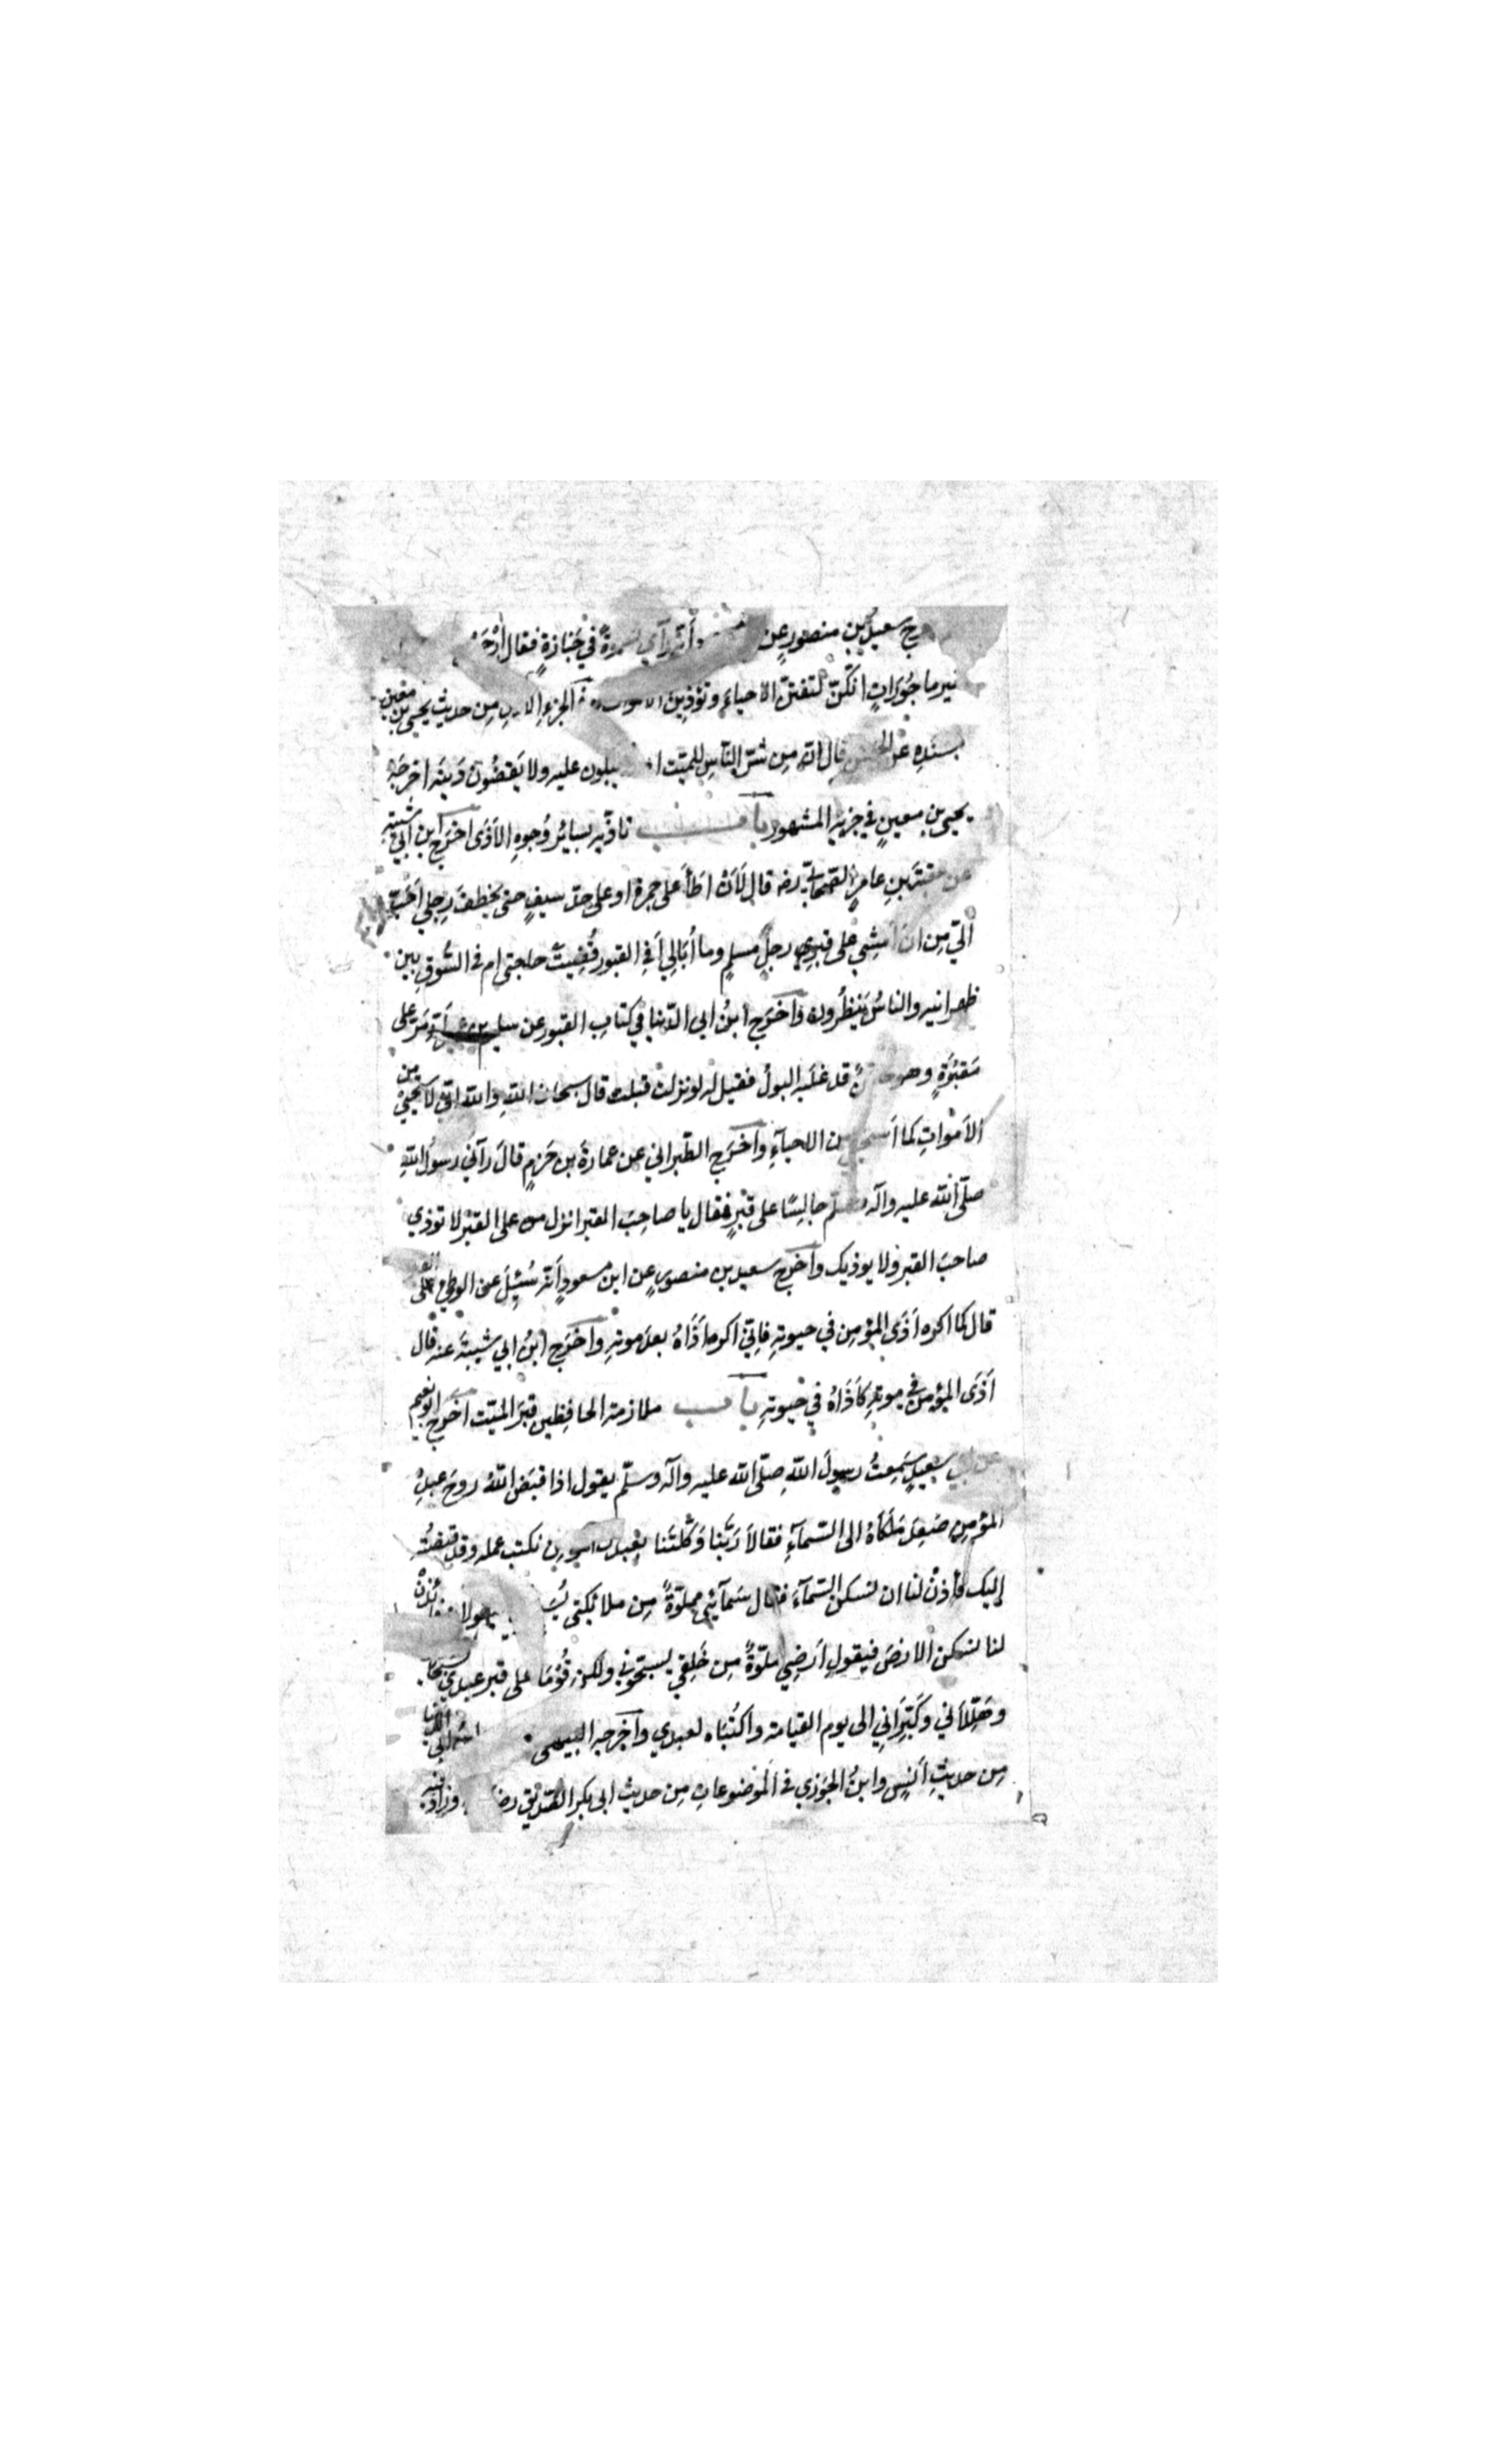 سعيد بن منصور عن وأنه رأى نسوة في جنازة فقال ارْجَ
غير ما جورات انكن لتفتن الأحياء وتؤذين في الجزء من حديث يحيى بن معين
بسنده عن الحسن قال انه من شر الناس للميت يبكون عليه ولا يقضون دَينه اخرجه
يحيى بن معين في جزيه المشهور باب تاذيه بسائر وجوه الأذى اخرج ابن ابي شيبة
عن عقبة بن عامر الصحابي رضه قال لَأن اطأ على جمرة او على حد سيف حتى يخطف رجلي احب
اليّ من ان امشي على قبر رجل مسلم وما أبالي أفي القبور قضيت حاجتي ام في السوق بين
ظهرانيه والناس ينظرون وأخرج ابن ابي الدنيا في كتاب القبور عن سليم أنه مَرّ على
مقبرة وهو قد غلبه البول فقيل له لو نزلت فبلت قال سبحان الله والله اني لاستحيي من
الأموات كما أستحيي من الاحياء وأخرج الطبراني عن عمارة بن حزم قال رآني رسول الله
صلّى الله عليه وآله وسلم جالسًا على قبر فقال يا صاحب القبر انزل من على القبر لا توذي
صاحب القبر ولا يوذيك وأخرج سعيد بن منصور عن ابن مسعود أنه سُئِل عن الوطي على القبر
قال كما اكره أذَى المؤمن في حيوته فانّي اكره أَذَاهُ بعد موته وأخرج ابن ابي شيبة عنه قال
أذَى المؤمن في موته كأذَاهُ في حيوته باب ملازمة الحافظين قبر الميّت أخرج ابو نعيم
عن ابي سعيد سَمِعتُ رسولَ الله صلّى الله عليه وآله وسلّم يقول اذا قبَض الله روحَ عبدِ
المؤمِن صَعِدَ مَلَكَاهُ الى السّمآءِ فقالا رَبَّنا وَكَّلتَنا بعبدك المؤمن نكتب عمله وقد قبضتَه
إليك فأذنْ لنا ان نسكن السّمآءَ فقال سَمآئي مملوّةٌ مِن ملائكتي فيقولا ائذنْ
لنا نسكن الارضَ فيقول أرضِي مملوّةٌ مِن خَلقي يسبّحوني ولكن قُومَا على قبر عبدي فسبّحا
وهَلِّلاَني وكَبِّرَاني الى يوم القيامة واكتُبَاه لعبدي وأخرجه البيهقى
مِن حديثِ أنسٍ وابنُ الجَوزي في الموضوعات مِن حديث ابي بكر الصّدّيق رضه وزاد فيه